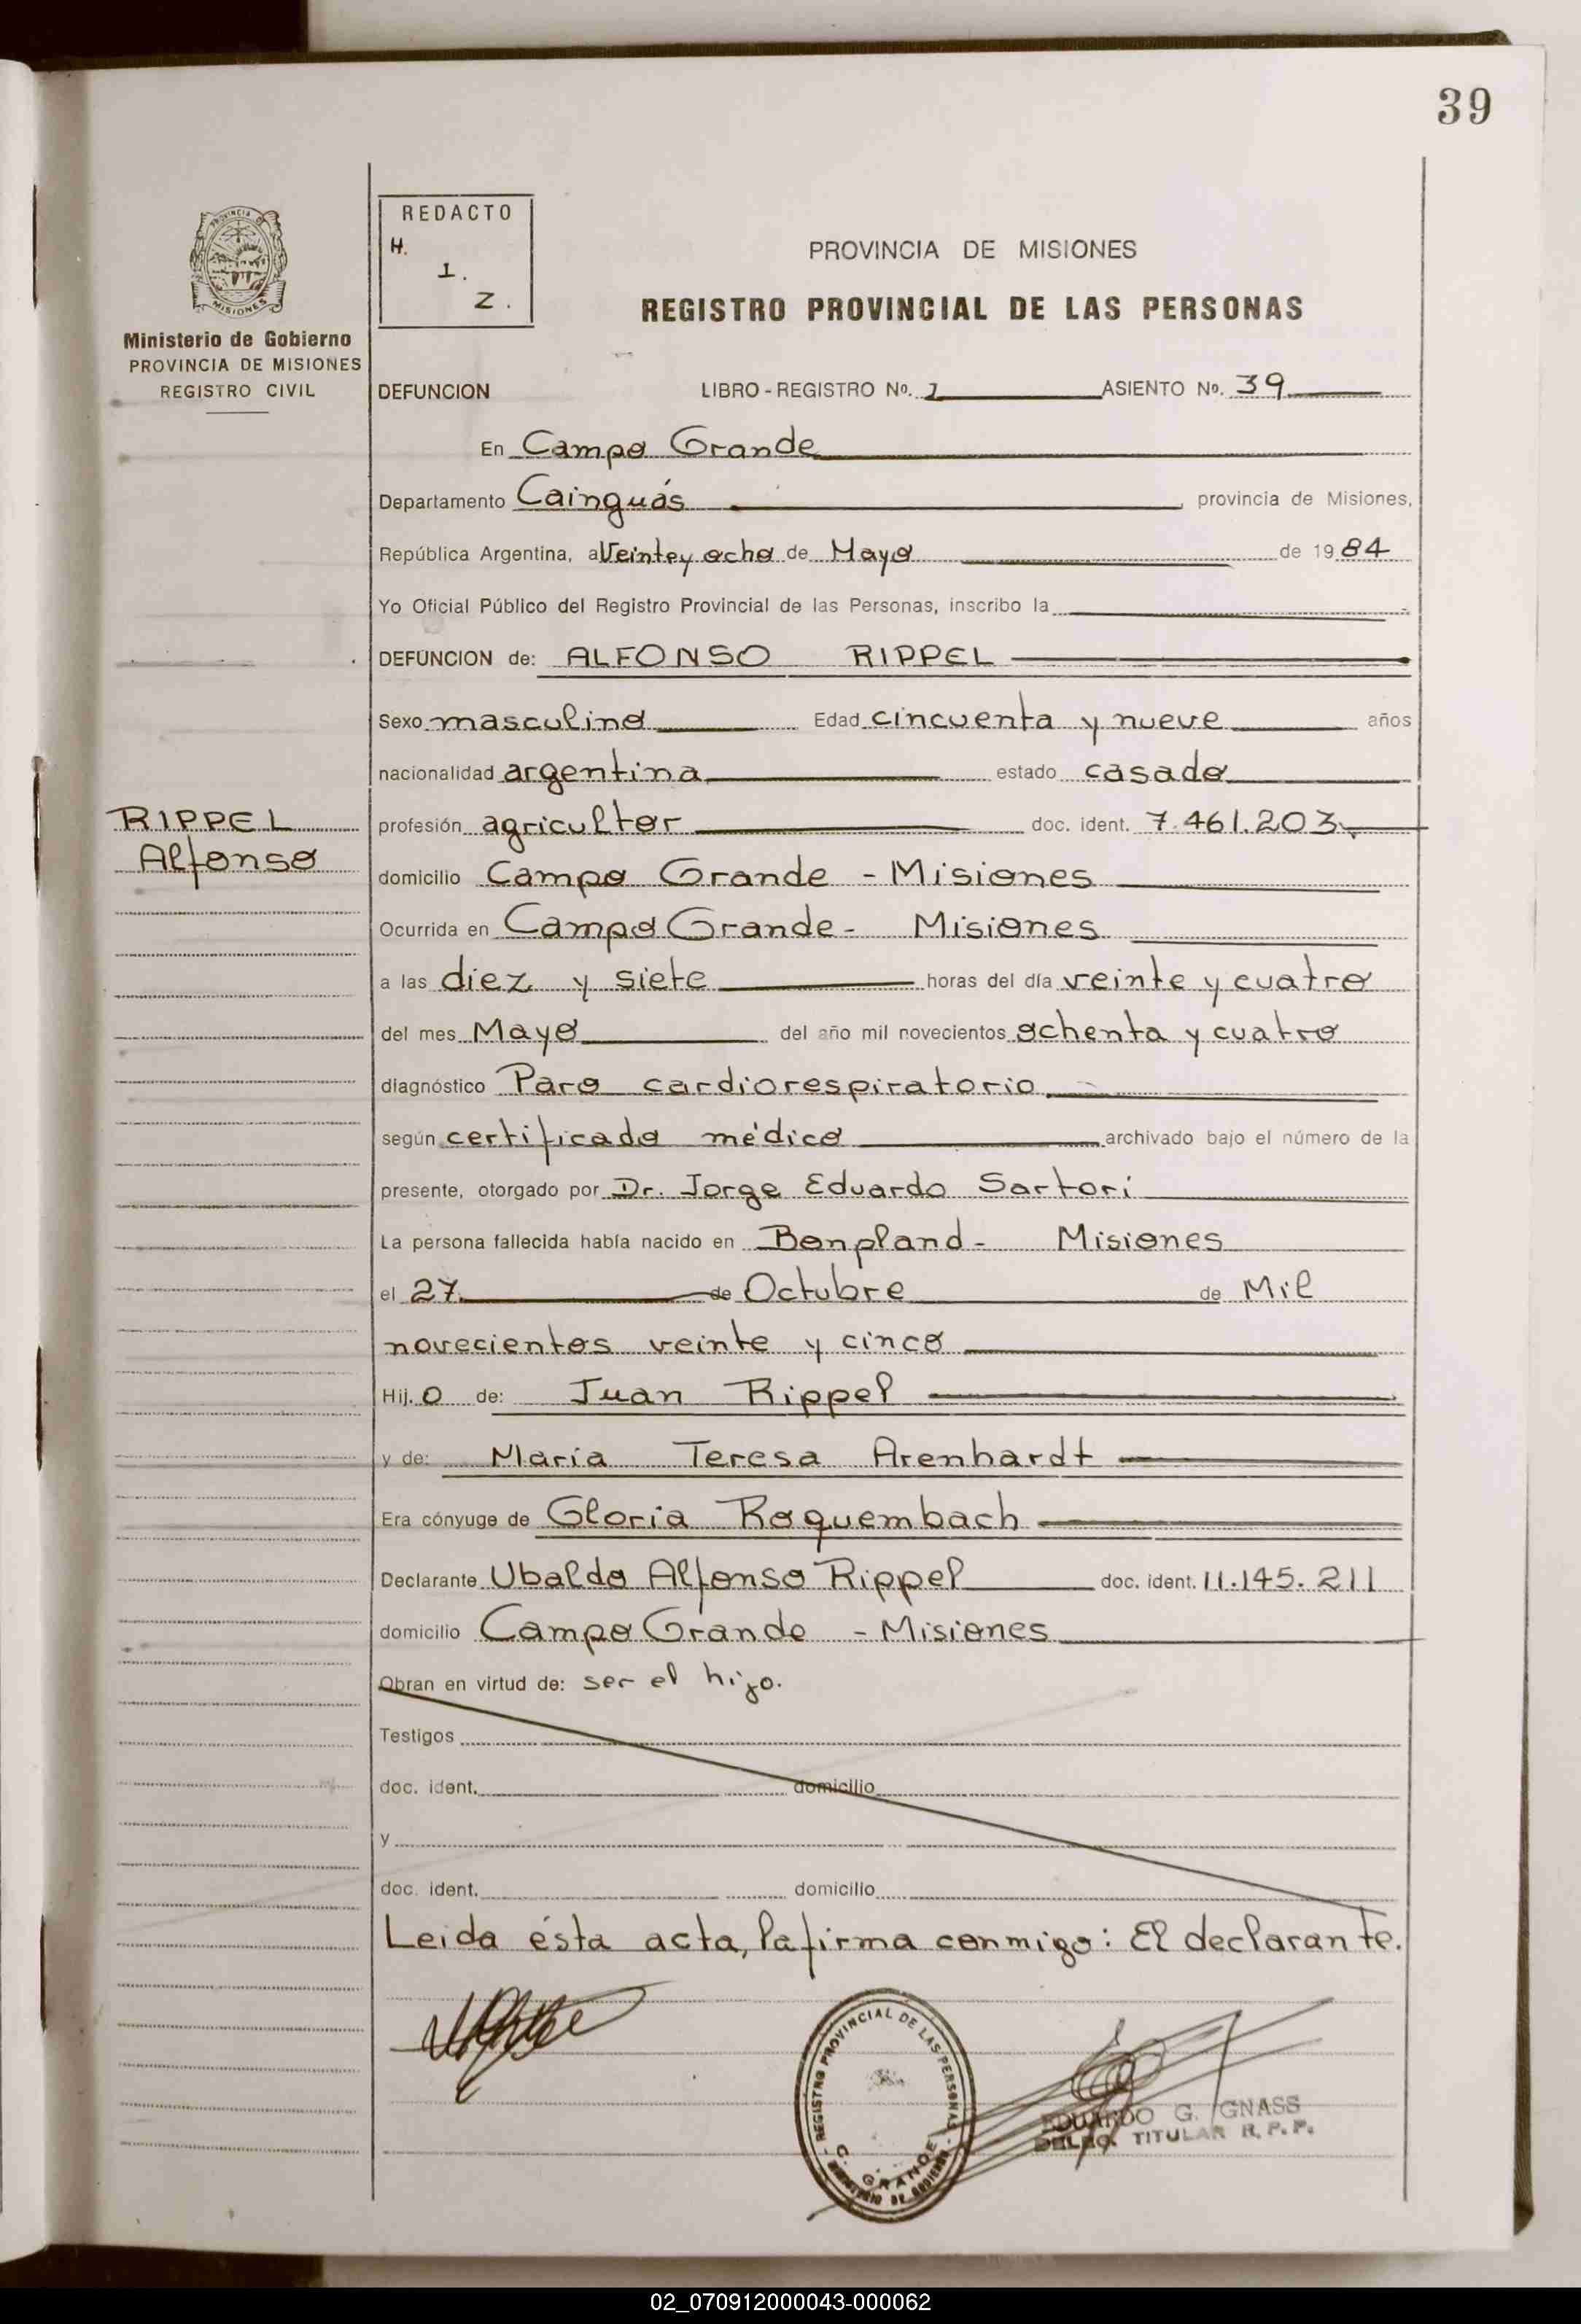 39
PROVINCIA DE
MISIONES
Ministerio de Gobierno
PROVINCIA DE MISIONES
REGISTRO CIVIL
REDACTO
H.
1.
Z.
PROVINCIA DE MISIONES
REGISTRO PROVINCIAL DE LAS PERSONAS
DEFUNCION LIBRO - REGISTRO Nº. 1 ASIENTO Nº. 39
En Campo Grande
Departamento Cainguás, provincia de Misiones,
República Argentina, a Veinte y ocho de Mayo de 1984
Yo Oficial Público del Registro Provincial de las Personas, inscribo la
DEFUNCION de: ALFONSO RIPPEL
Sexo masculino Edad cincuenta y nueve años
nacionalidad argentina estado casado
RIPPEL
Alfonso
profesión agricultor doc. ident. 7.461.203.
domicilio Campo Grande - Misiones
Ocurrida en Campo Grande - Misiones
a las diez y siete horas del día veinte y cuatro
del mes Mayo del año mil novecientos ochenta y cuatro
diagnóstico Paro cardiorespiratorio
según certificado médico archivado bajo el número de la
presente, otorgado por Dr. Jorge Eduardo Sartori
La persona fallecida había nacido en Bonpland - Misiones
el 27 de Octubre de Mil
novecientos veinte y cinco
Hij.o de: Juan Rippel
y de: María Teresa Arenhardt
Era cónyuge de Gloria Roquembach
Declarante Ubaldo Alfonso Rippel doc. ident. 11.145.211
domicilio Campo Grande - Misiones
Obran en virtud de: ser el hijo.
Testigos
doc. ident. domicilio
y
doc. ident. domicilio
Leida ésta acta, la firma conmigo: El declarante.
REGISTRO PROVINCIAL DE LAS PERSONAS
C. GRANDE
MINISTERIO DE GOBIERNO
EDUARDO G. GNASS
DELEG. TITULAR R. P. P.
02_070912000043-000062